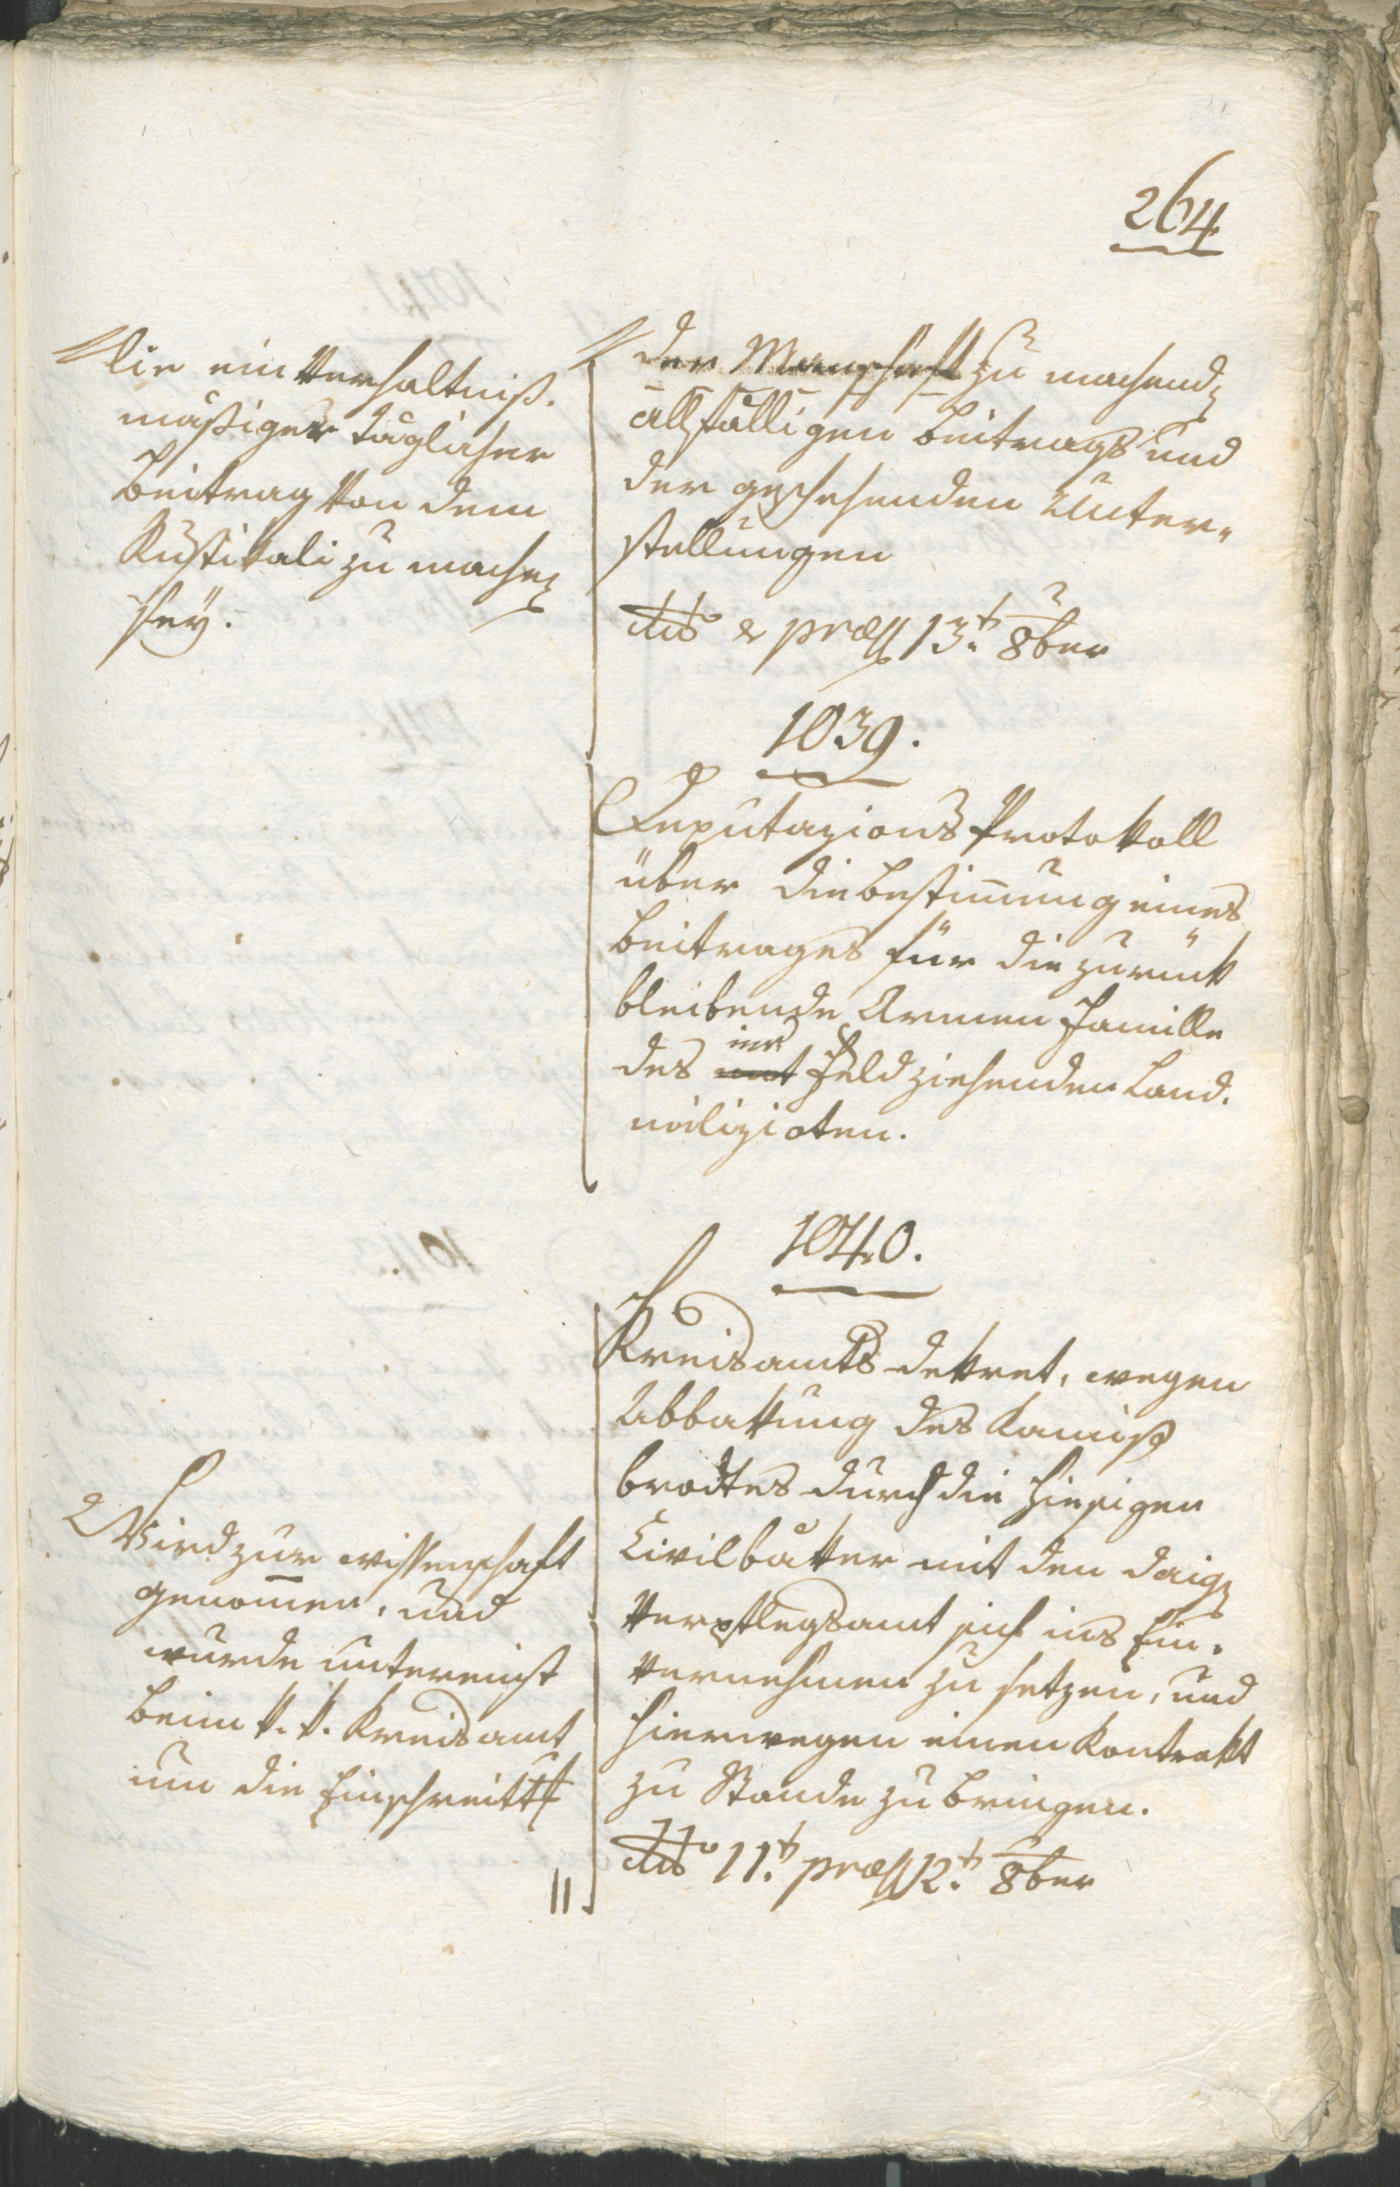 264
lie ein Verhältniß-
mäßiger täglicher
Beitrag von dem
Rustikali zu machen
sey.
der Manschaft zu machend
allfälligen Beitrags und
der geschehenden Unter-
stellungen
dto & præs 13t. 8ber
1039.
Deputazions Protokoll
über die Bestimmung eines
Beitrages für die zurük
bleibende Armen Familie
des ins Feld ziehenden Land-
milizioten.
1040.
Kreisamts dekret, wegen
Abbakung des Komiß
brodtes durch die hiesigen
Civilbäker mit den daig
Verpflegsamt sich ins Ein-
vernehmen zu setzen, und
hierwegen einen Kontrakt
zu Stande zu bringen.
dto 11t. præs 12t. 8ber
Wird zur wissenschaft
genomen, und
wurde untereinst
beim k. k. Kreisamt
um die Einschreitt